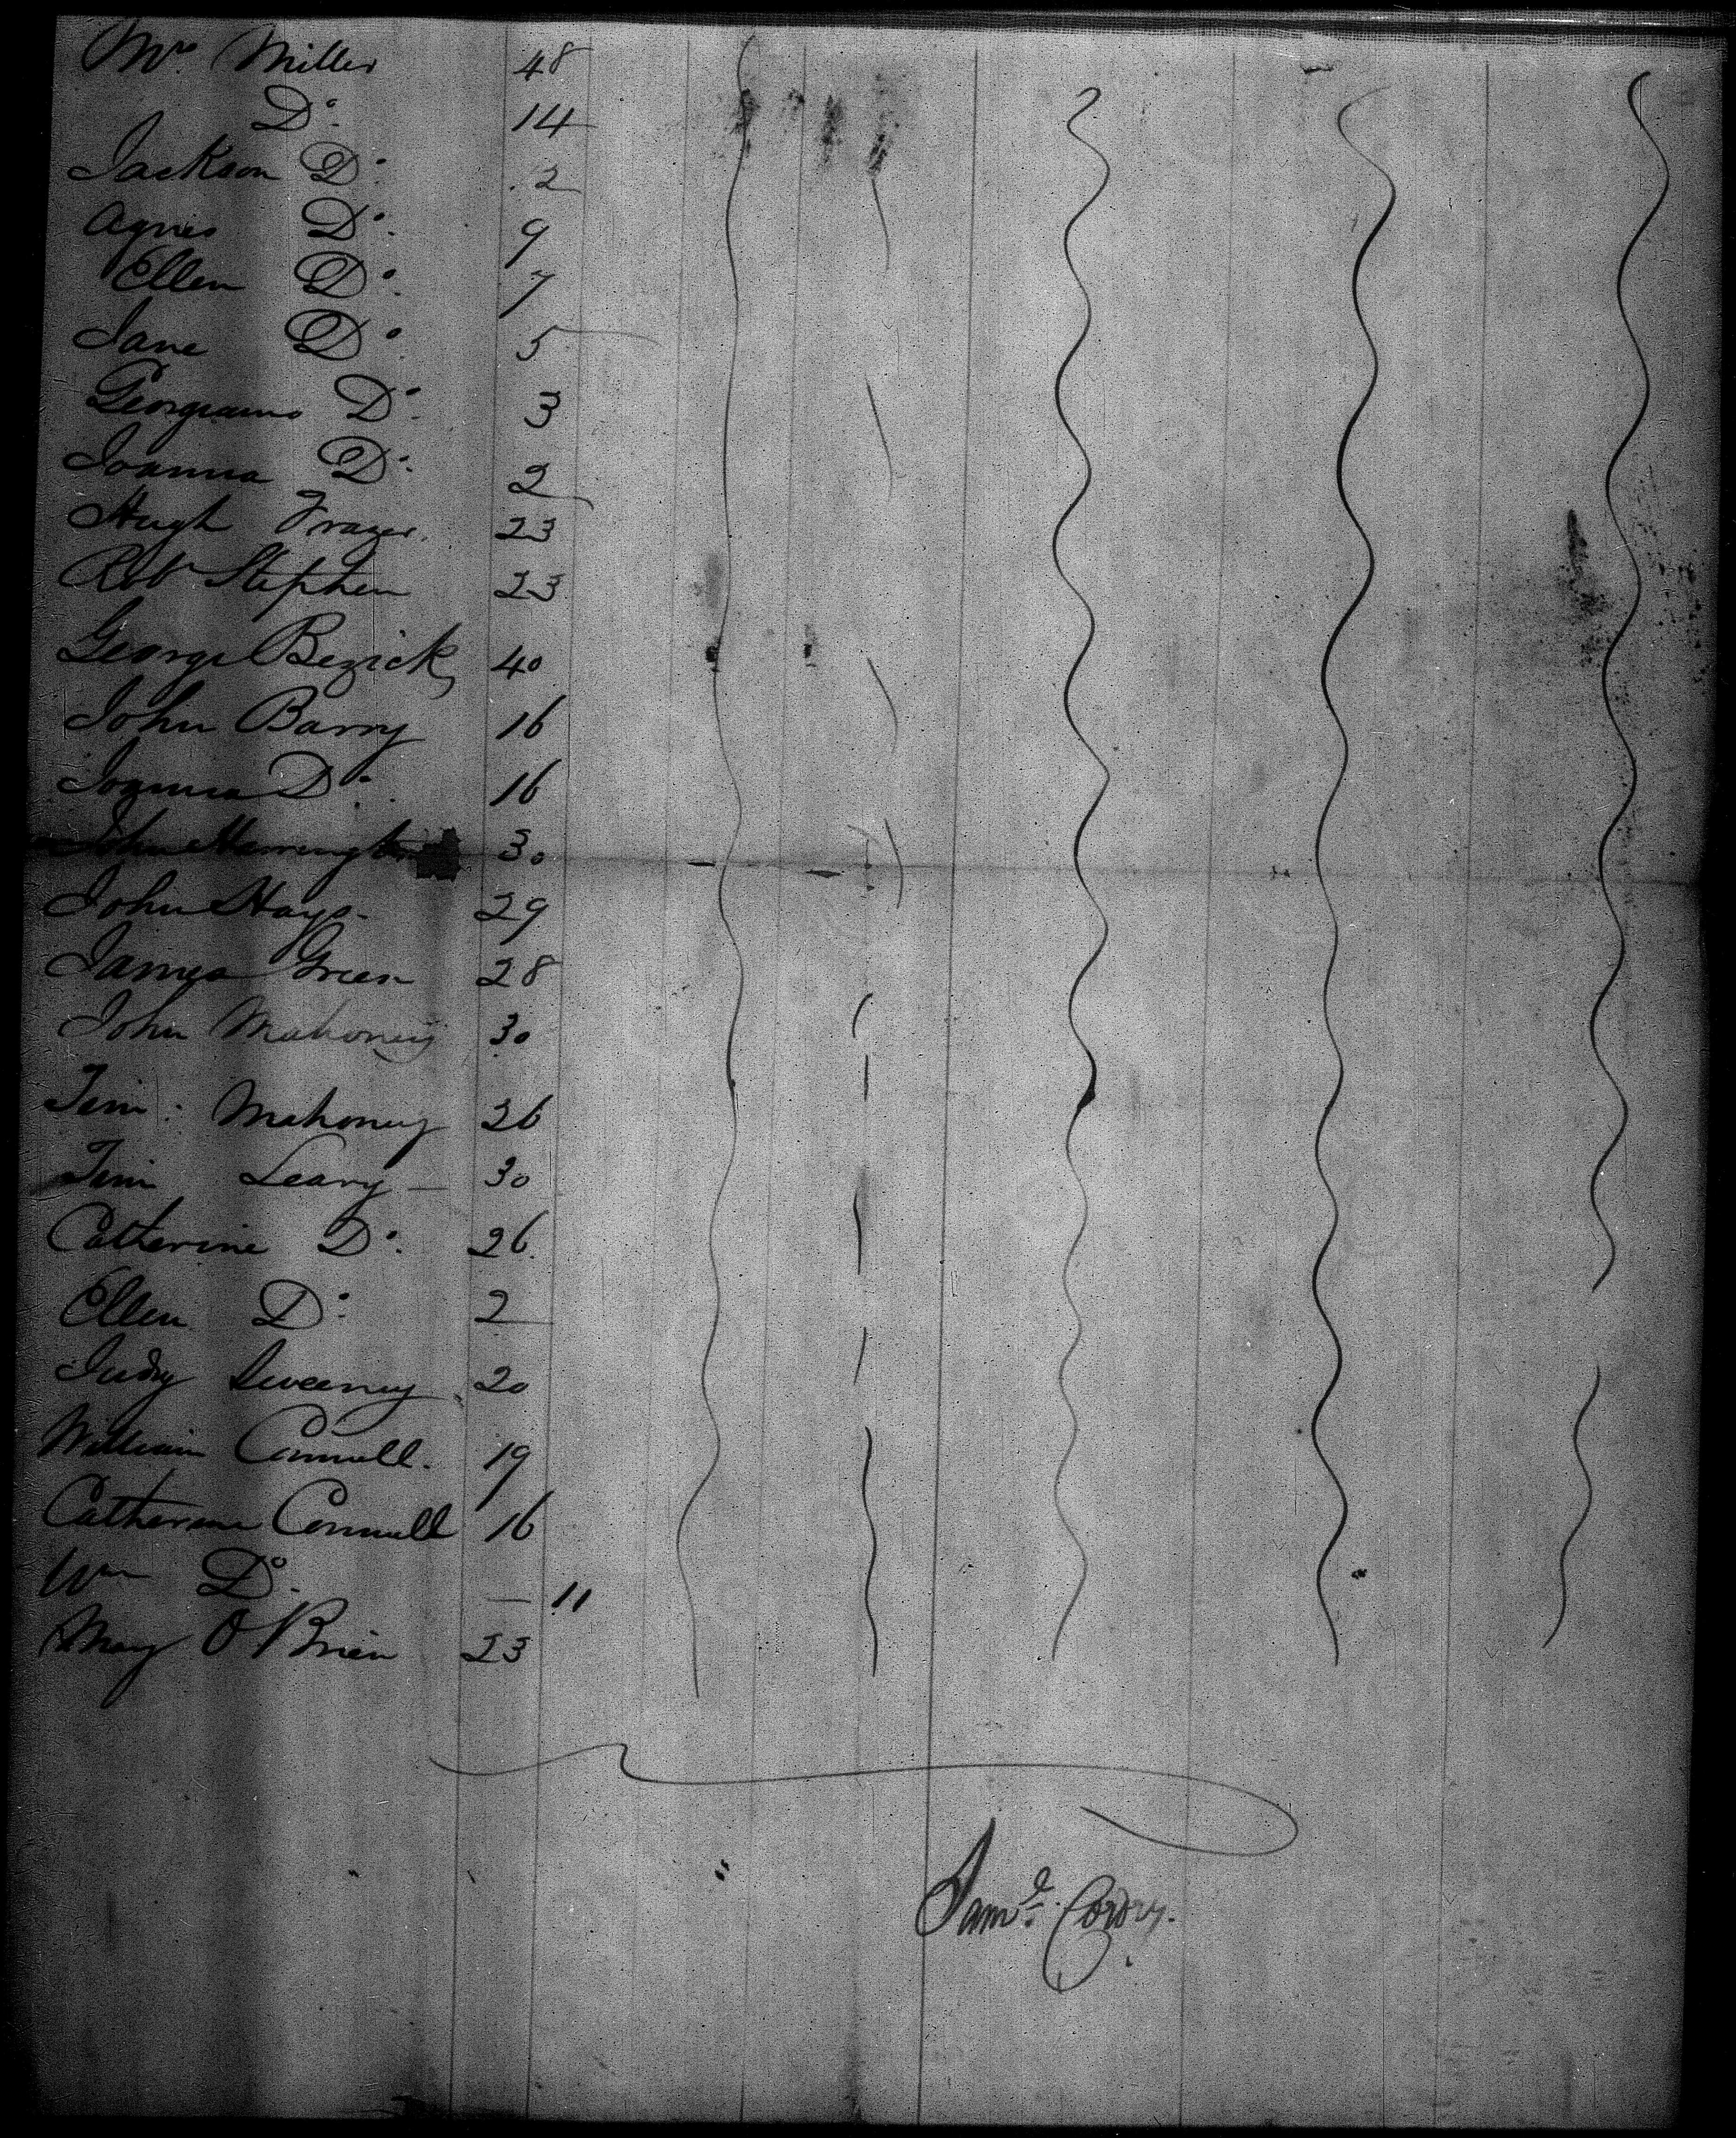 Mrs. Miller 48
Do. 14
Jackson Do. 2
Agnes Do. 9
Ellen Do. 7
Jane Do. 5
Georgiana Do. 3
Joanna Do. 2
Hugh Frazer. 23
Robt Stephen 23
George Bezick 40
John Barry 16
Joanna Do. 16
John Herrington 30
John Hays 29
James Green 28
John Mahoney 30
Tim: Mahoney 26
Tim Leary 30
Catherine Do. 26
Ellen Do. 2
Judy Sweeney 20
William Connell. 19
Catherine Connell 16
Wm Do. — 11
Mary O'Brien 23
Saml. Corory.